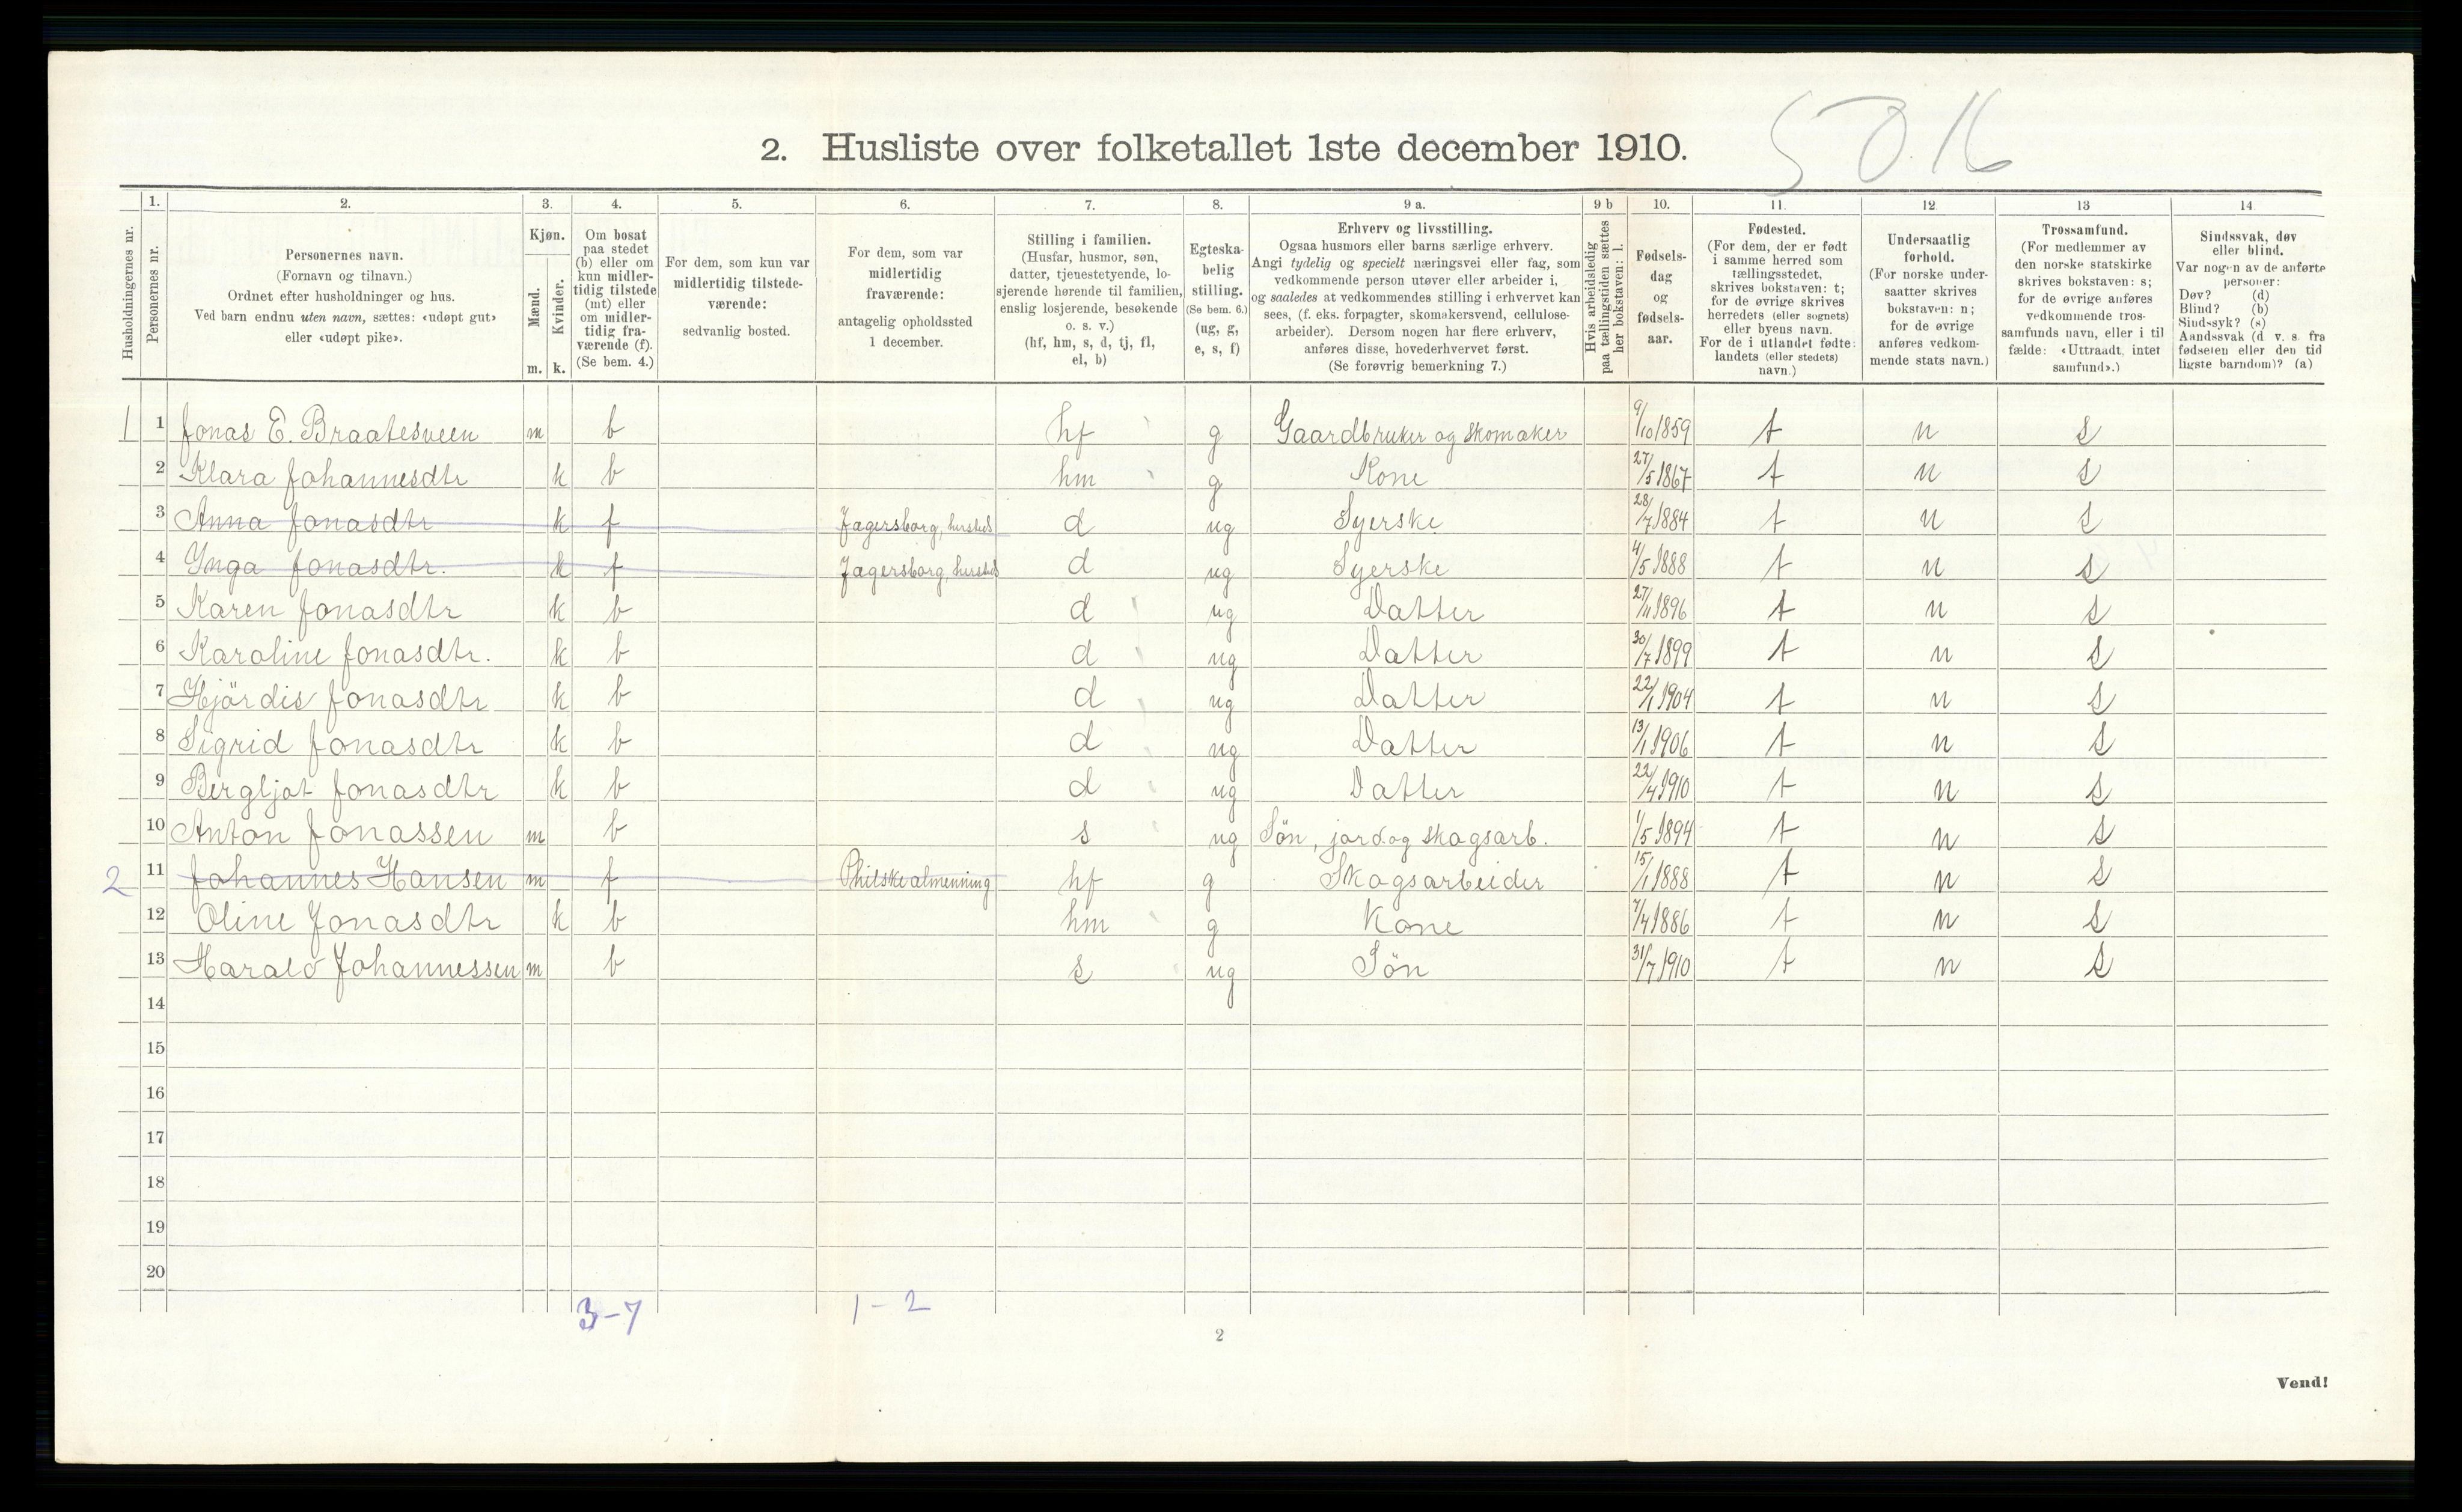 5016
2. Husliste over folketallet 1ste december 1910.
Husholdningernes nr.
1.
Personernes nr.
2.
Personernes navn.
(Fornavn og tilnavn.)
Ordnet efter husholdninger og hus.
Ved barn endnu uten navn, sættes: «udøpt gut»
eller «udøpt pike».
3.
Kjøn.
Mænd.
Kvinder.
m. k.
4.
Om bosat
paa stedet
(b) eller om
kun midler-
tidig tilstede
(mt) eller
om midler-
tidig fra-
værende (f).
(Se bem. 4.)
5.
For dem, som kun var
midlertidig tilstede-
værende:
sedvanlig bosted.
6.
For dem, som var
midlertidig
fraværende:
antagelig opholdssted
1 december.
7.
Stilling i familien.
(Husfar, husmor, søn,
datter, tjenestetyende, lo-
sjerende hørende til familien,
enslig losjerende, besøkende
o. s. v.)
(hf, hm, s, d, tj, fl,
el, b)
8.
Egteska-
belig
stilling.
(Se bem. 6.)
(ug, g,
e, s, f)
9 a.
Erhverv og livsstilling.
Ogsaa husmors eller barns særlige erhverv.
Angi tydelig og specielt næringsvei eller fag, som
vedkommende person utøver eller arbeider i,
og saaledes at vedkommendes stilling i erhvervet kan
sees, (f. eks. forpagter, skomakersvend, cellulose-
arbeider). Dersom nogen har flere erhverv,
anføres disse, hovederhvervet først.
(Se forøvrig bemerkning 7.)
9 b
Hvis arbeidsledig
paa tællingstiden sættes
her bokstaven: l.
10.
Fødsels-
dag
og
fødsels-
aar.
11.
Fødested.
(For dem, der er født
i samme herred som
tællingsstedet,
skrives bokstaven: t;
for de øvrige skrives
herredets (eller sognets)
eller byens navn.
For de i utlandet fødte:
landets (eller stedets)
navn.)
12.
Undersaatlig
forhold.
(For norske under-
saatter skrives
bokstaven: n;
for de øvrige
anføres vedkom-
mende stats navn.)
13
Trossamfund.
(For medlemmer av
den norske statskirke
skrives bokstaven: s;
for de øvrige anføres
vedkommende tros-
samfunds navn, eller i til
fælde: «Uttraadt, intet
samfund».)
14.
Sindssvak, døv
eller blind.
Var nogen av de anførte
personer:
Døv? (d)
Blind? (b)
Sindssyk? (s)
Aandssvak (d. v. s. fra
fødselen eller den tid
ligste barndom)? (a)
1 1 Jonas E. Braatesveen m b hf g Gaardbruker og skomaker 9/10 1859 t n s
2 Klara Johannesdtr k b hm g Kone 27/5 1867 t n s
3 Anna Jonasdtr k f Jagersborg, d ug Syerske 28/7 1884 t n s
4 Ynga Jonasdtr. k f Jagersborg, d ug Syerske 4/5 1888 t n s
5 Karen Jonasdtr k b d ug Datter 27/11 1896 t n s
6 Karoline Jonasdtr. k b d ug Datter 30/7 1899 t n s
7 Hjördis Jonasdtr k b d ug Datter 22/1 1904 t n s
8 Sigrid Jonasdtr k b d ug Datter 13/1 1906 t n s
9 Bergljot Jonasdtr k b d ug Datter 22/4 1910 t n s
10 Anton Jonassen m b s ug Sön, jord.og skogsarb. 1/5 1894 t n s
2 11 Johannes Hansen m f almenning hf g Skogsarbeider 15/1 1888 t n s
12 Oline Jonasdtr k b hm g Kone 7/4 1886 t n s
13 Harald Johannessen m b s ug Sön 31/7 1910 t n s
14
15
16
17
18
19
20
3-7 1-2
2
Vend!